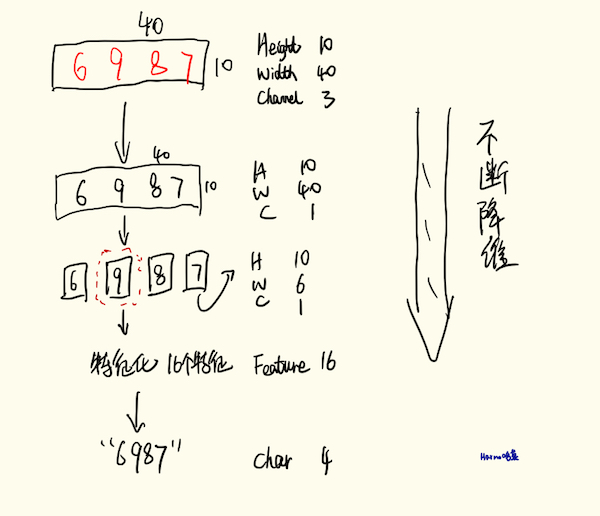 40
6 9 8 7
10
Height 10
Width 40
Channel 3
40
6 9 8 7
10
H 10
W 40
C 1
6 9 8 7
H 10
W 6
C 1
特征化 16个特征 Feature 16
"6987" Char 4
不断降维